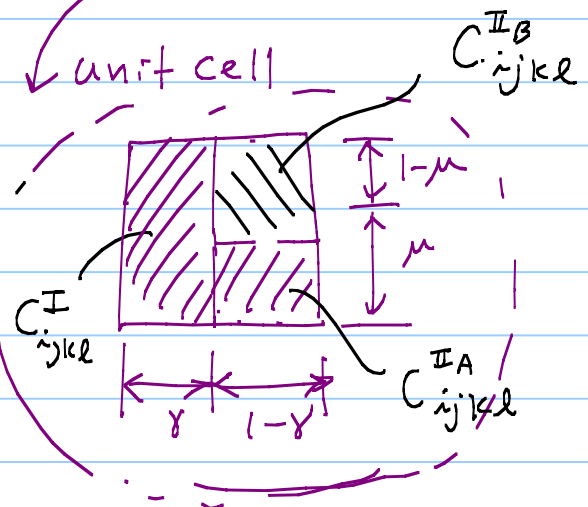 unit cell
C^{IIB}_{ijkl}
1-μ
μ
C^{I}_{ijkl}
C^{IIA}_{ijkl}
γ
1-γ